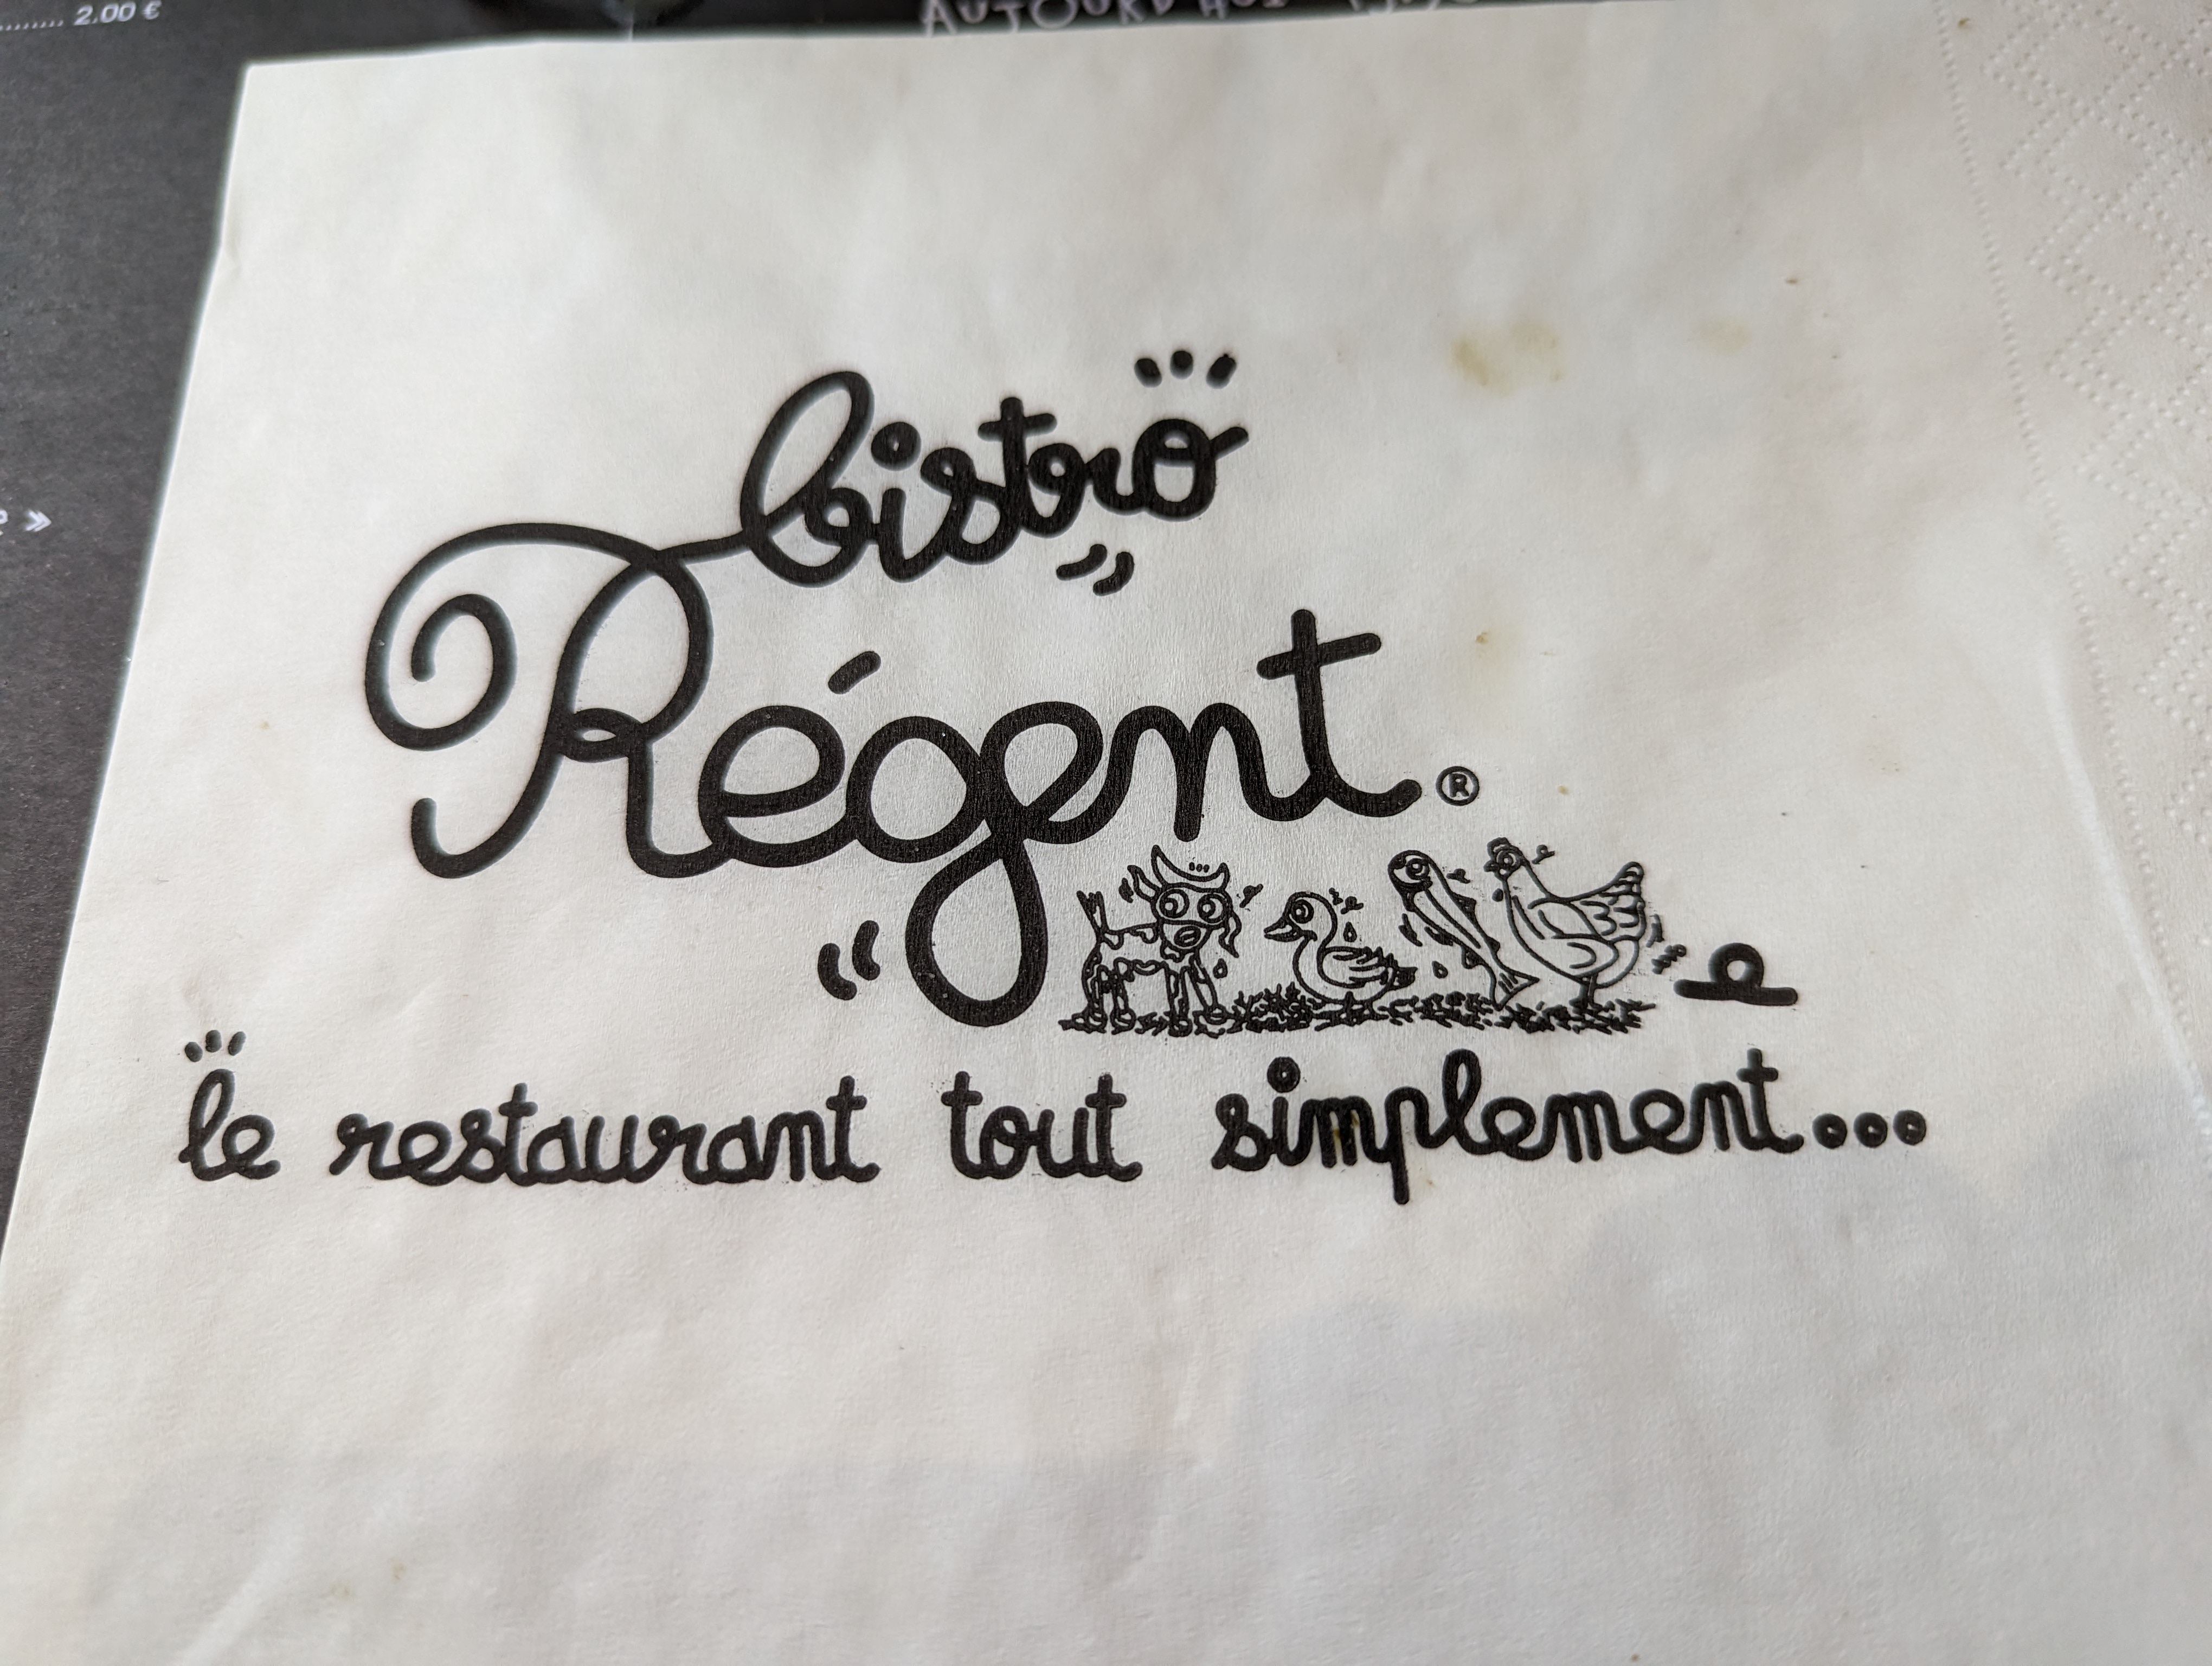 2.00 €
»
bistro
Régent
®
le restaurant tout simplement...